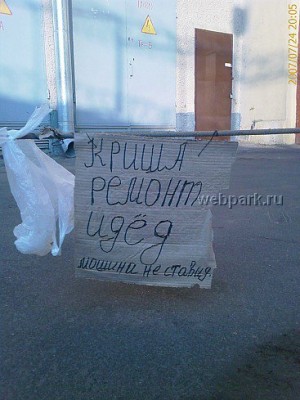 2007/07/24 20:05
КРИША
РЕМОНТ
идёд
машина не ставид
webpark.ru